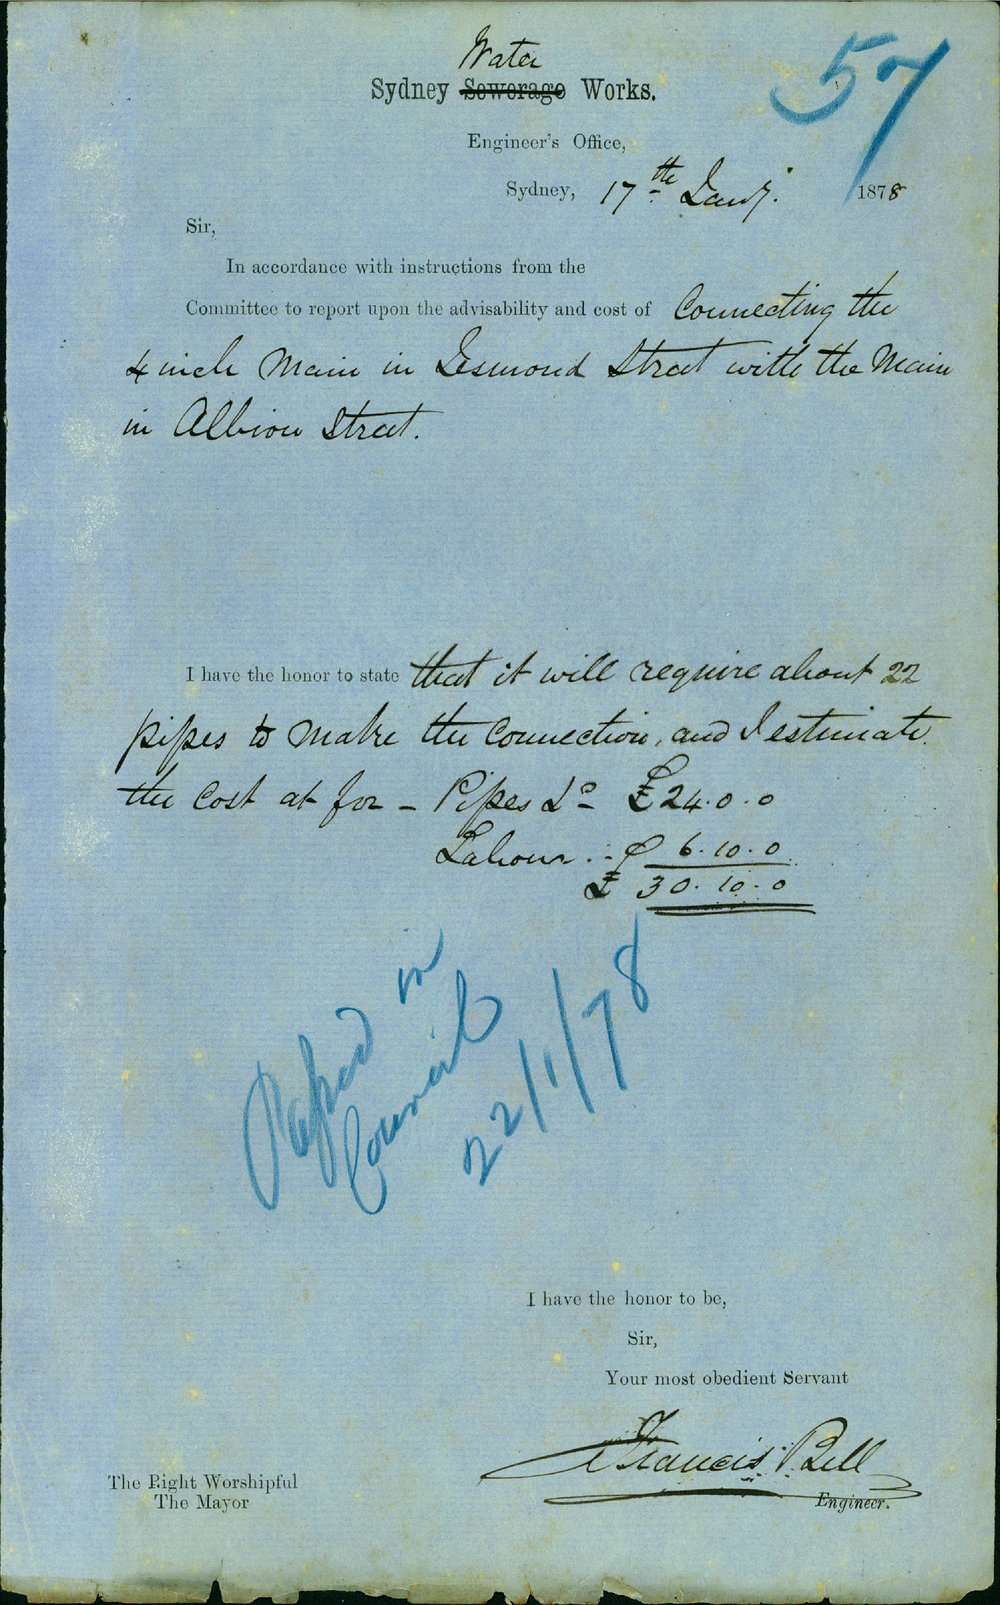 Water
57
Sydney Sewerage Works.
Engineer's Office,
Sydney, 17th Jany. 1878
Sir,
In accordance with instructions from the
Committee to report upon the advisability and cost of Connecting the
4 inch Main in Esmond Street with the Main
in Albion Street.
I have the honor to state that it will require about 22
pipes to make the Connection, and I estimate
the Cost at for - Pipes &c £24.0.0
Labour 6.10.0
£ 30.10.0
in
Council
22/1/78
I have the honor to be,
Sir,
Your most obedient Servant
Francis Bell
Engineer.
The Right Worshipful
The Mayor